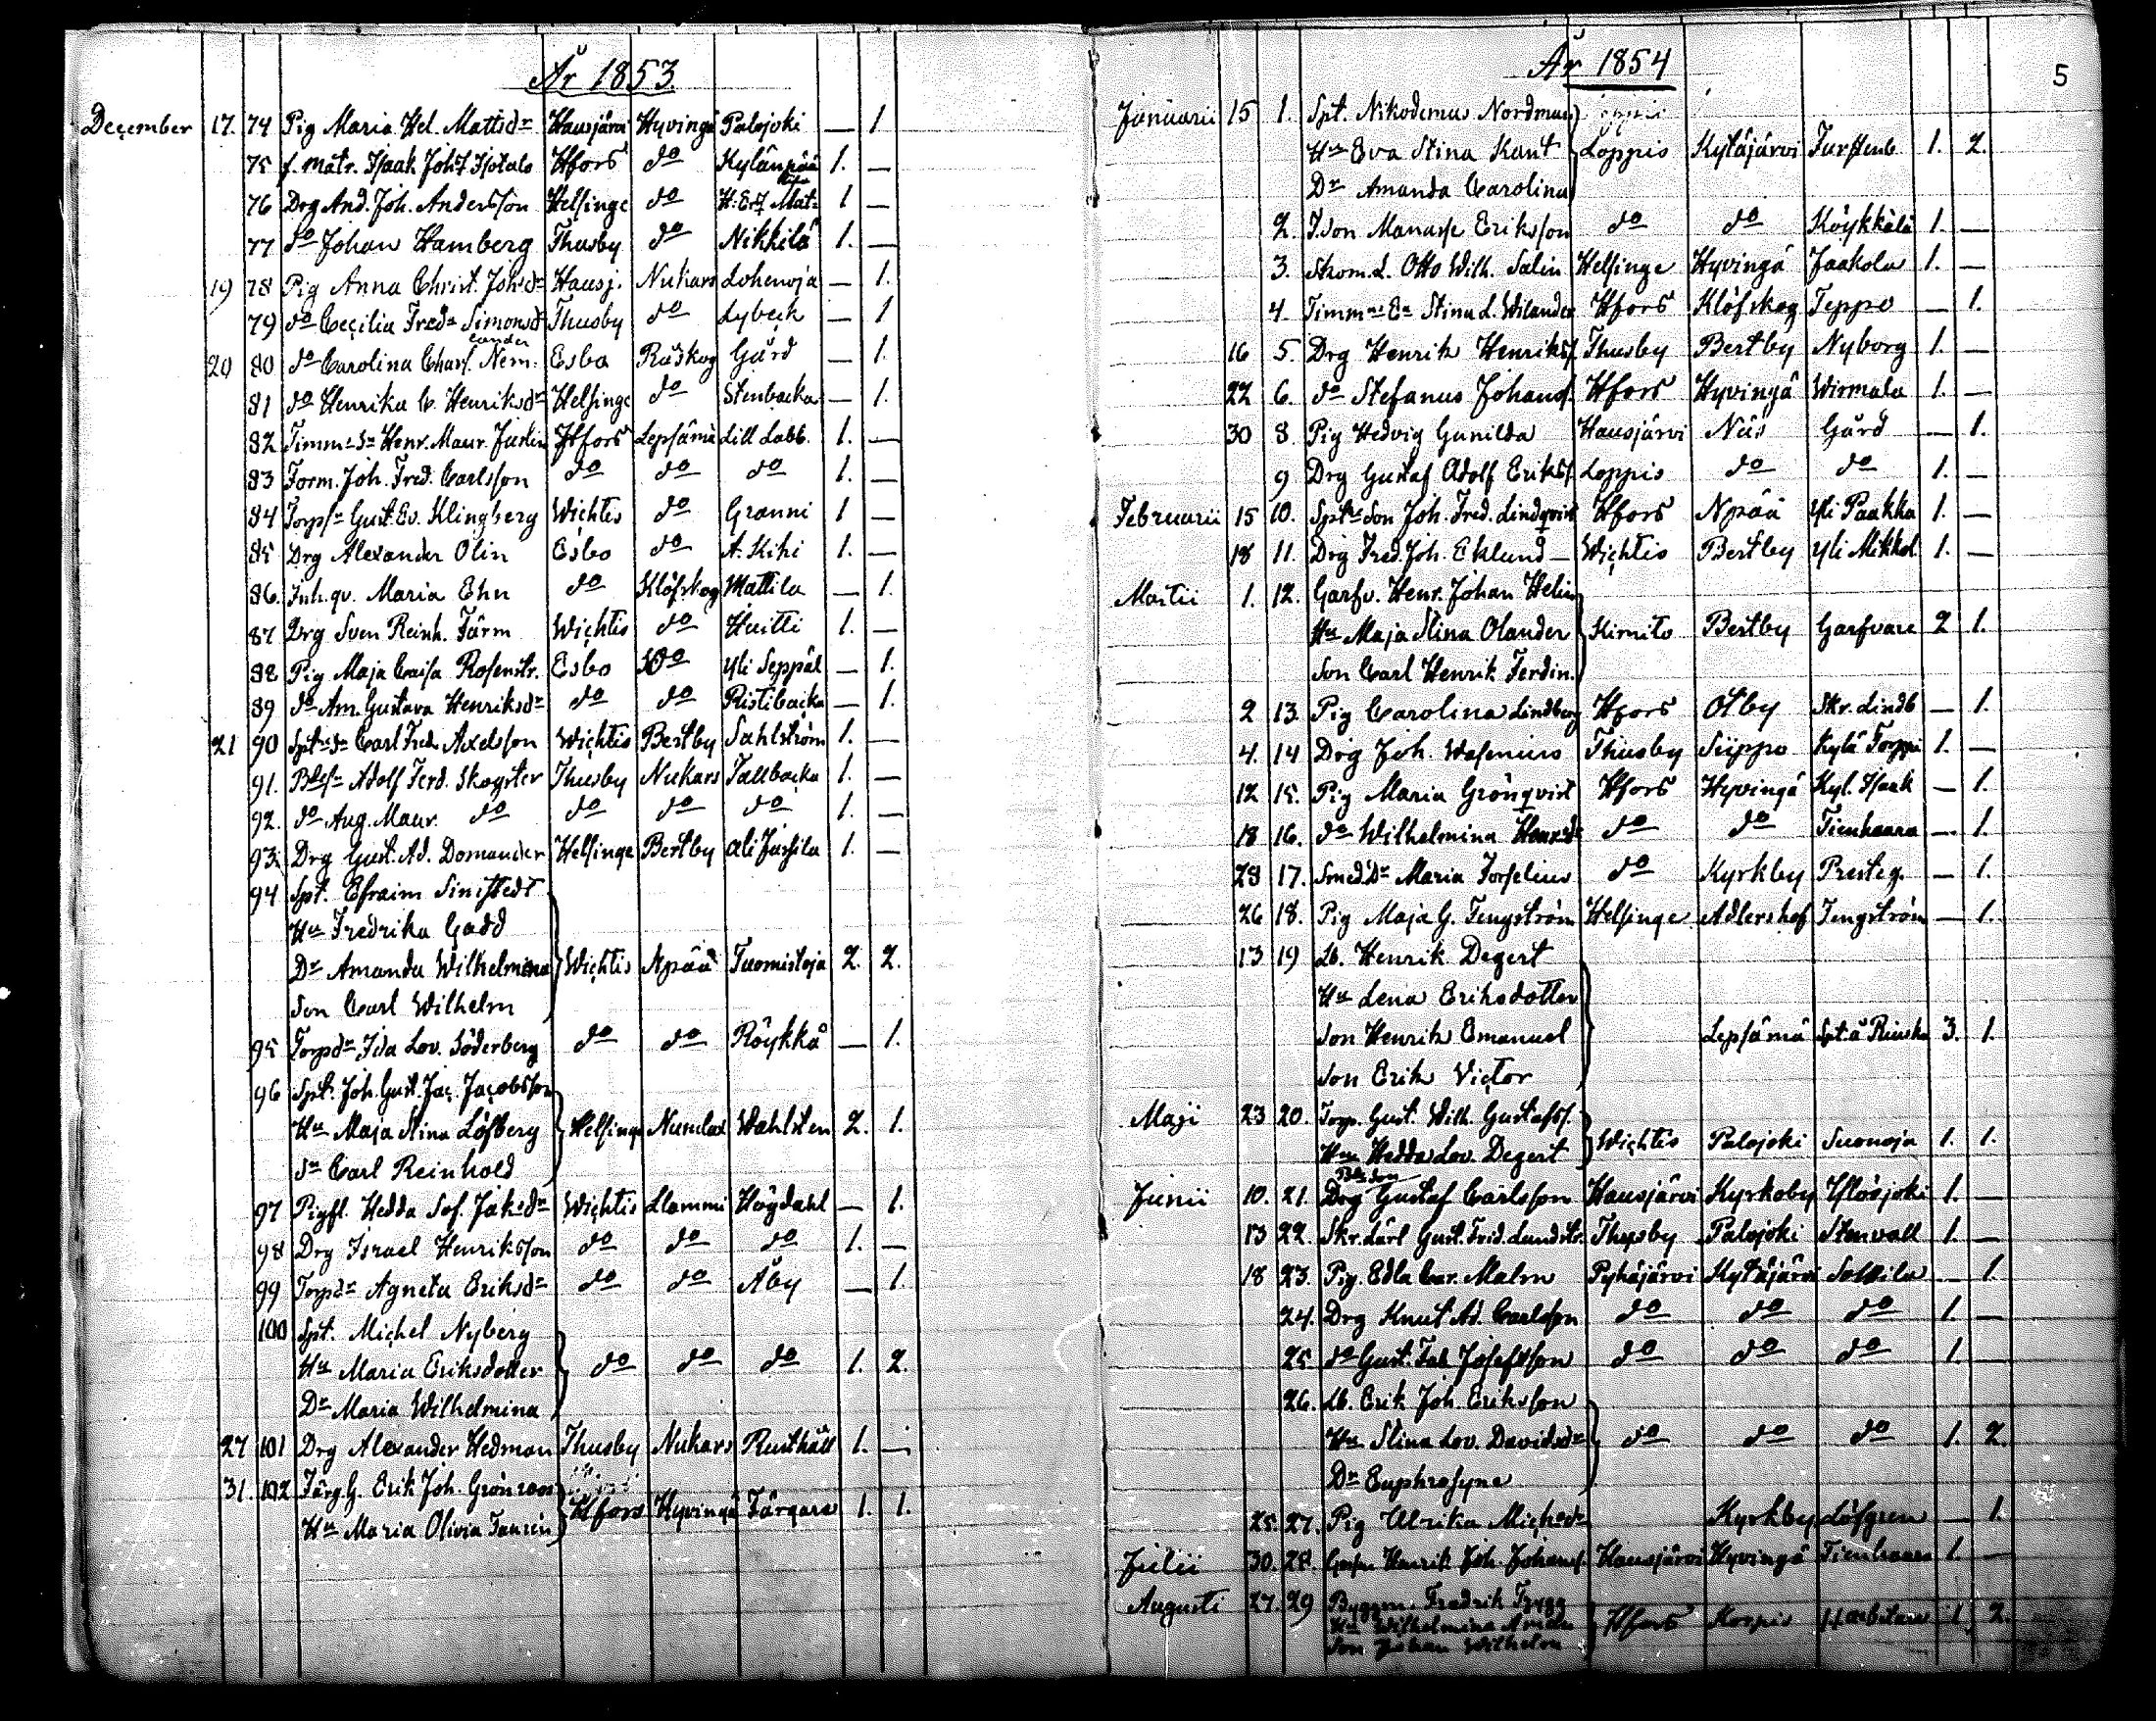 År 1853.
December 17. 74 Pig Maria Hel. Mattsdr Hausjärvi Hyvinge Palojoki — 1.
75 f. matr. Isaak Joh. Isotalo Hfors do Kylänpää 1. —
76 Drg And. Joh. Andersson Helsinge do 1 —
77 do Johan Hamberg Thusby do Nikkilä 1. —
19 78 Pig Anna Christ. Johsdr Hausj. Nukars Lohenoja — 1.
79 do Cecilia Freda Simonsdr Thusby do Lybeck — 1
20 80 do Carolina Charl. Nem. Esbo Råskog Gård — 1.
lander
81 do Henrika C. Henriksdr Helsinge do Stenbacka — 1.
82 Timm: Sn Henr. Maur. Juslin Hfors Lepsämä Lill Labb. 1. —
83 Form. Joh. Fred. Carlsson do do do 1. —
84 Torpsn Gust. Ev. Klingberg Wichtis do Granni 1 —
85 Drg Alexander Olin Esbo do A. Kihi 1. —
86. Inh. qv. Maria Ehn do Klöfskog Mattila — 1.
87 Drg Sven Reinh. Färm Wichtis do Huitti 1. —
88 Pig Maja Caisa Rosenstr. Esbo do Yli Seppäl — 1.
89 do Am. Gustava Henriksdr do do Ristibacka — 1.
21 90 Sptsn Carl Fred. Axelsson Wichtis Bertby Sahlström 1. —
91. Adolf Ferd. Skogster Thusby Nukars Tallbacka 1. —
92. do Aug. Maur. do do do do 1. —
93. Drg Gust. Ad. Domander Helsinge Bertby Ali Jussila 1. —
94 Spt. Efraim Sinistedt
Hu Fredrika Gadd
Dr Amanda Wilhelmina Wichtis Npää Tuomistoja 2. 2.
Son Carl Wilhelm
95 Torpdr Ida Lov. Söderberg do do Röykkä — 1.
96 Spt. Joh. Gust. Jac. Jacobsson
Hu Maja Stina Löfberg Helsinge Numlax Wahlsten 2. 1.
Sn Carl Reinhold
97 Pigfl. Hedda Sof. Jaksdr Wichtis Llammi Högdahl — 1.
98 Drg Israel Henriksson do do do 1. —
99 Torpdr Agneta Eriksdr do do Åby — 1.
100 Spt. Michel Nyberg
Hu Maria Eriksdotter do do do 1. 2.
Dr Maria Wilhelmina
27 101 Drg Alexander Hedman Thusby Nukars Rusthåll 1. —
31. 102 Färg. G. Erik Joh. Grönroos
Hu Maria Olivia Hfors Hyvingä Färgare 1. 1.
År 1854
5
Januarii 15 1. Spt. Nikodemus Nordman
Hu Eva Stina Kant Loppis Kytäjärvi Furstenb 1. 2.
Dr Amanda Carolina
2. T.Son Manasse Eriksson do do Röykkälä 1. —
3. Skom. L. Otto Wilh. Salin Helsinge Hyvingä Jaakola 1. —
4 Timm: Ea Stina L. Wilander Hfors Klöfskog Teppo — 1.
16 5. Drg Henrik Henrikss. Thusby Bertby Nyborg 1. —
22 6. do Stefanus Johanss. Hfors Hyvingä Wirmala 1. —
30 8. Pig Hedvig Gunilda Hausjärvi Näs Gård — 1.
9 Drg Gustaf Adolf Erikss. Loppis do do 1. —
Februarii 15 10. Spts Son Joh. Fred. Lindqvist Hfors Npää Yli Paakka 1. —
18 11. Drg Fred. Joh. Eklund — Wichtis Bertby Yli Mikkol 1. —
Martii 1. 12. Garfv. Henr. Johan Helin
Hu Maja Stina Olander Kimito Bertby Garfvare 2 1.
Son Carl Henrik Ferdin.
2 13. Pig Carolina Lindberg Hfors Otby Skr. Lindb — 1.
4. 14 Drg Joh. Wasenius Thusby Siippo Kylä Torppi 1. —
12 15. Pig Maria Grönqvist Hfors Hyvingä Kyl. Isaak — 1.
18 16. do Wilhelmina Henrdr do do Tienhaara — 1.
28 17. Smed. Dr Maria Forselius do Kyrkby Presteg. — 1.
26 18. Pig Maja G. Tengström Helsinge Adlershof Tengström — 1.
13 19 Lb. Henrik Degert
Hu Lena Eriksdotter
Son Henrik Emanuel Lepsämä Spt. å 3. 1.
Son Erik Victor
Maji 23 20. Torp. Gust. Wilh. Gustafss.
Hu Hedda Lov. Degert Wichtis Palojoki Suonoja 1. 1.
Junii 10. 21. Drg Gustaf Carlsson Hausjärvi Kyrkoby 1. —
13 22. Skr. Lärl Gust. Frid. Lundstr. Thusby Palojoki Stenvall 1. —
18 23. Pig. Edla Car. Malm Pyhäjärvi Kytäjärvi — 1.
24. Drg Knut Ad. Carlsson do do do 1. —
25. do Gust. Fab Josefsson do do do 1. —
26. Lb. Erik Joh. Eriksson
Hu Stina Lov. Davidsdr do do do 1. 2.
Dr Euphrosyne
25. 27. Pig Ulrika Michsdr Kyrkby Löfgren — 1.
Julii 30. 28. Henrik Joh. Johanss. Hausjärvi Hyvingä Tienhaara 1. —
Augusti 27. 29 Byggm. Fredrik Trygg
Hu Wilhelmina Hfors 1. 2.
Son Johan Wilhelm